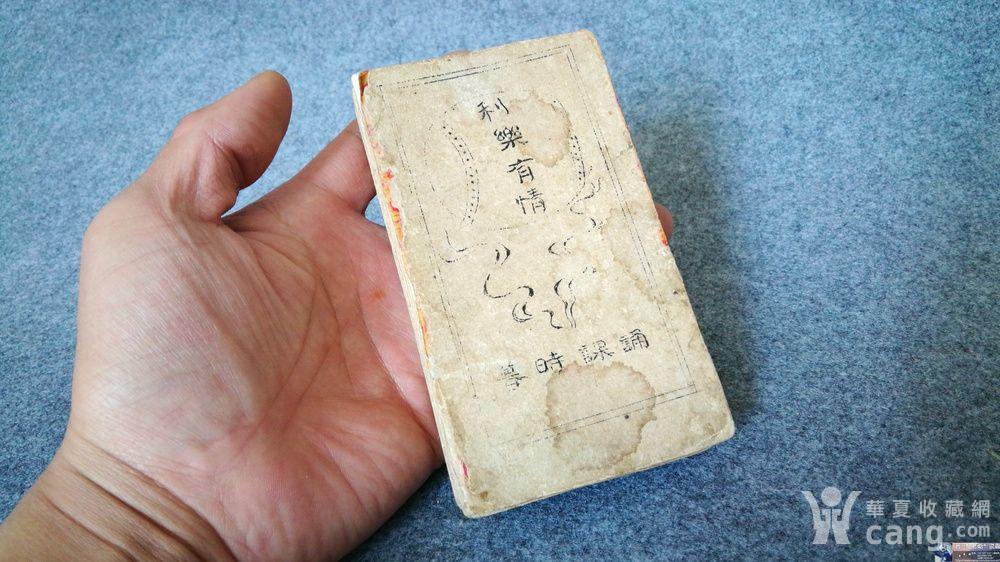 利樂有情
暮時課誦
華夏收藏網
cang.com